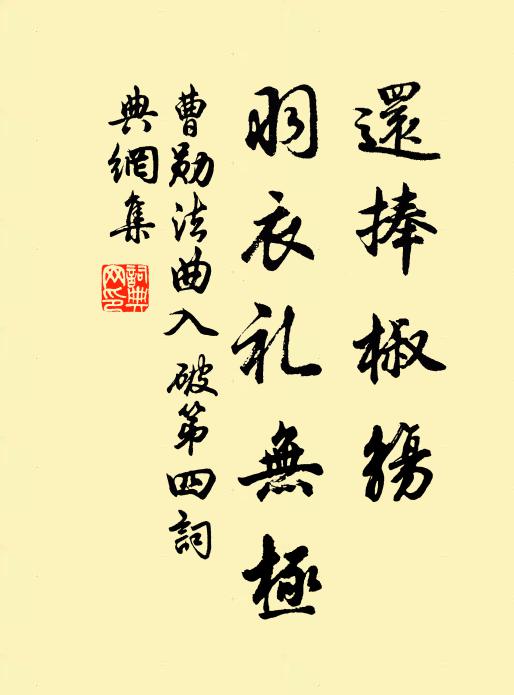 還捧椒觴
羽衣礼無極
曹勛法曲入破第四詞
典網集
詞典
网印